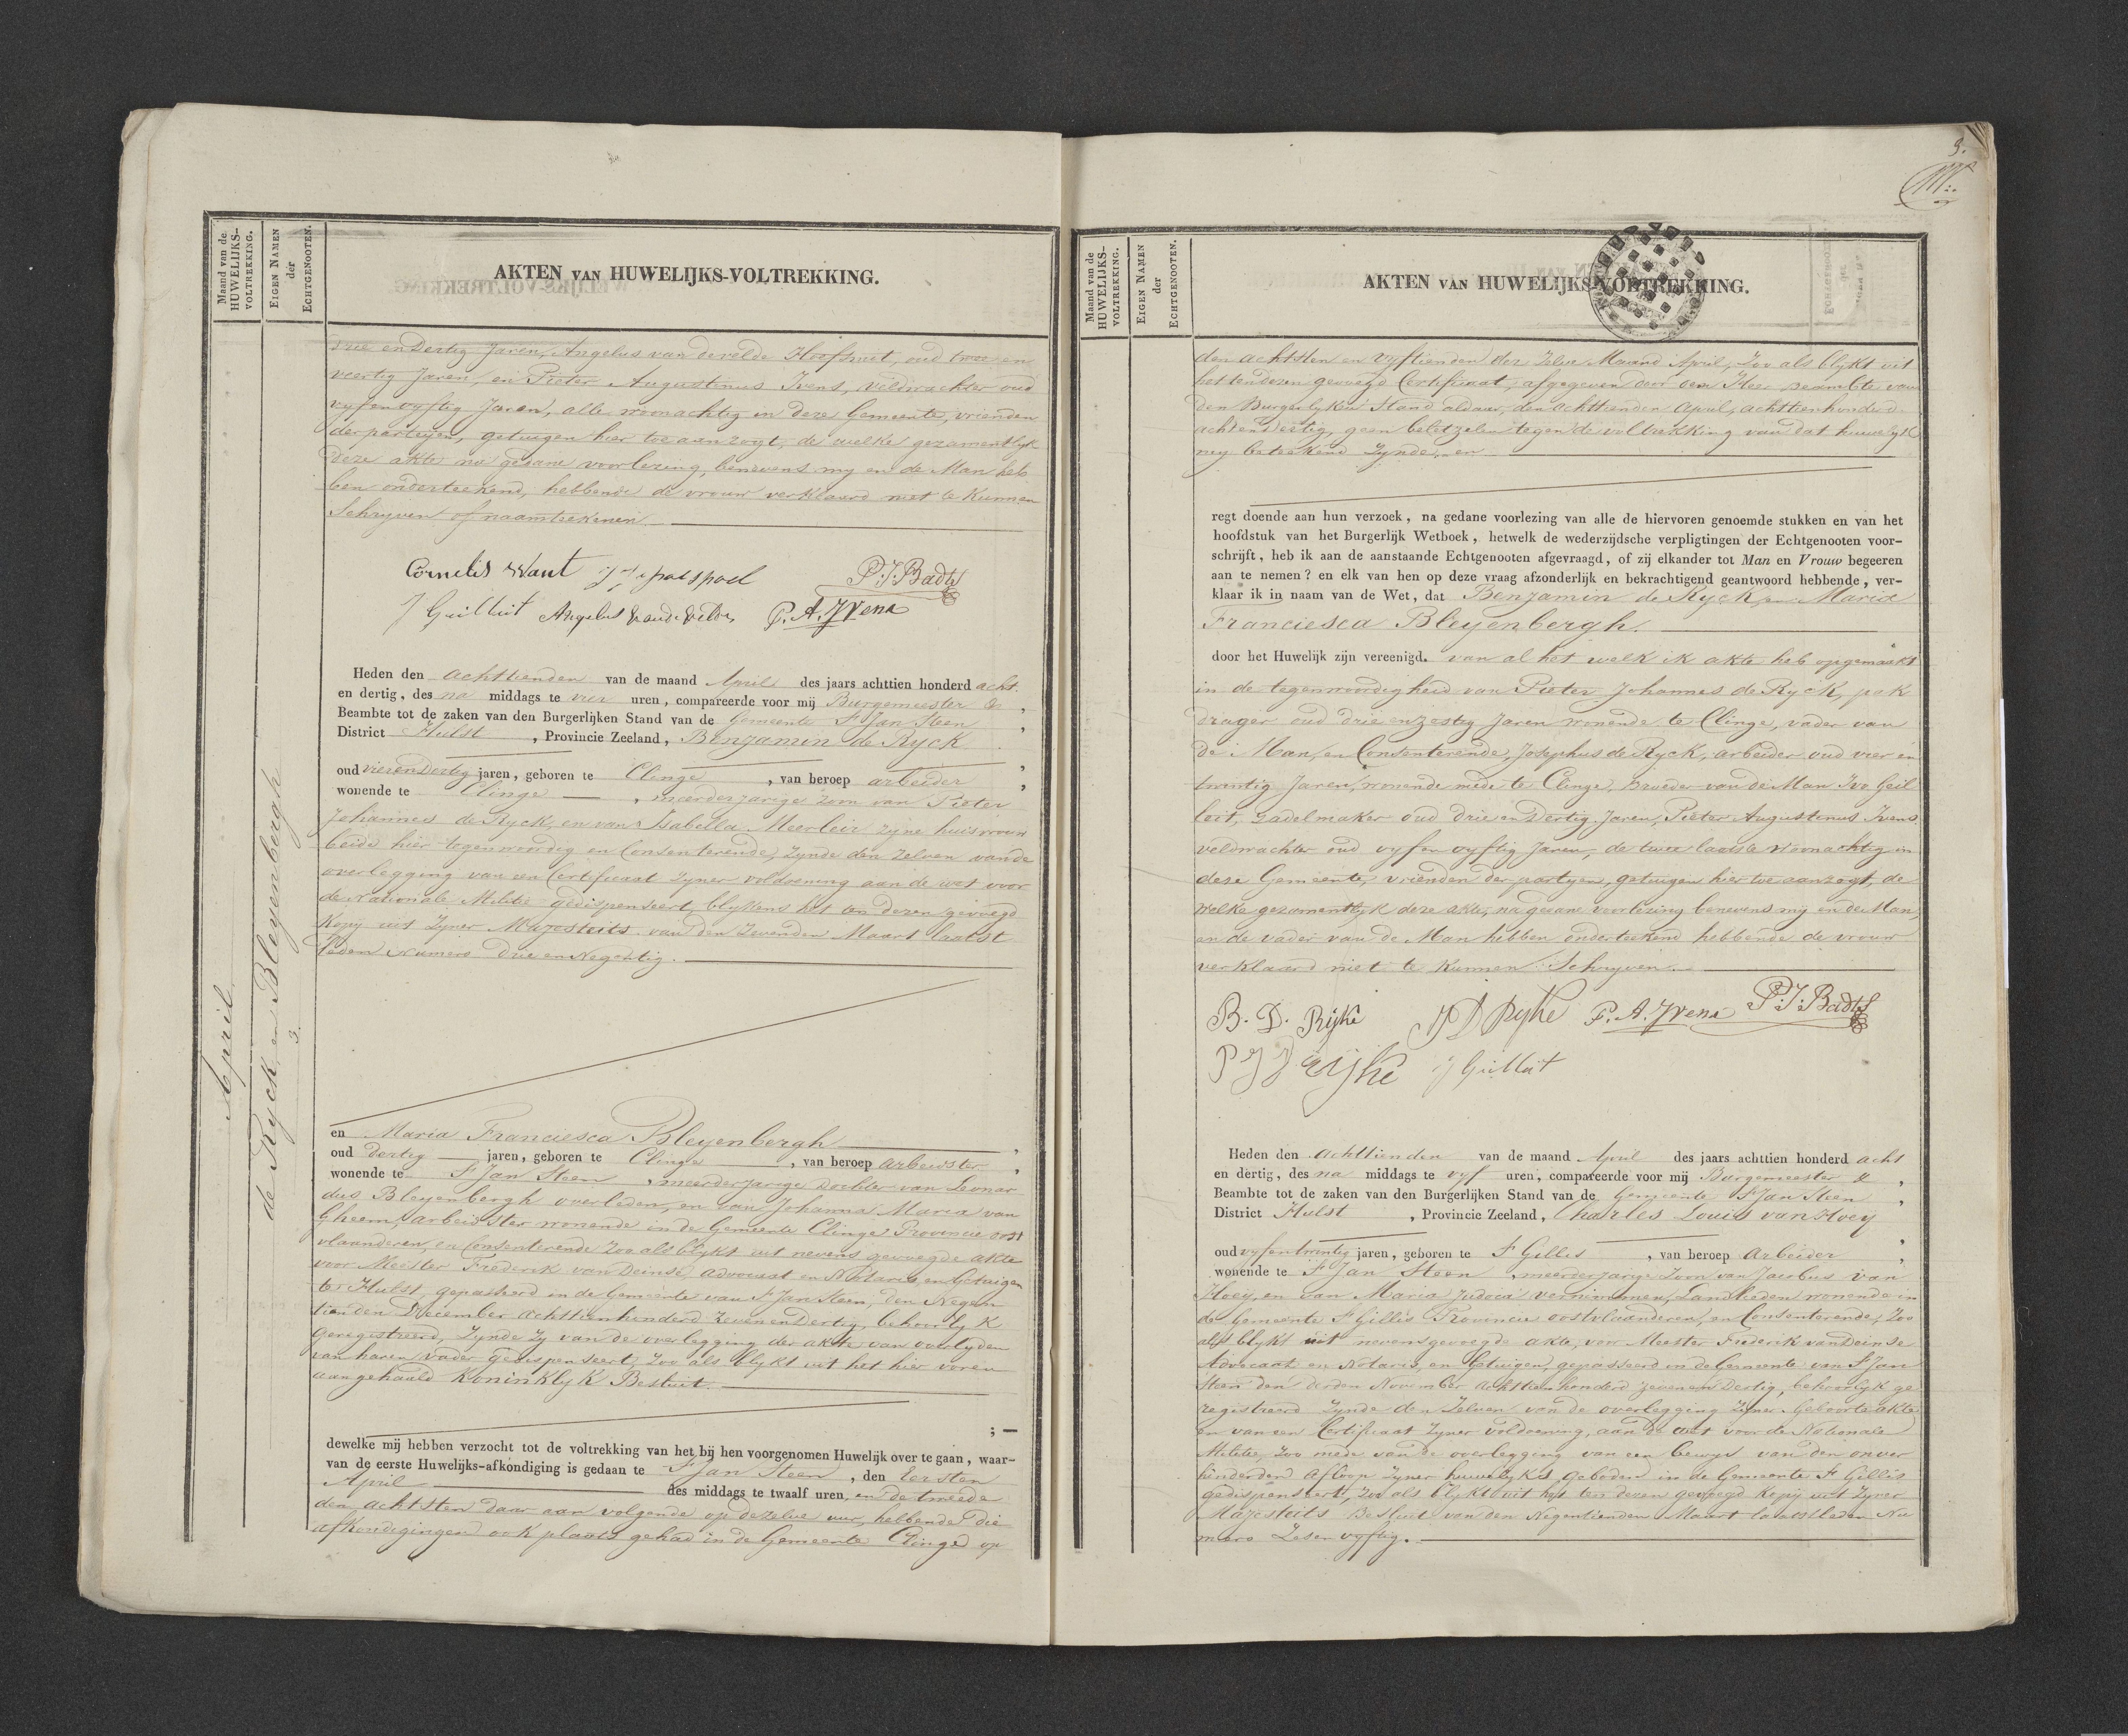 Maand van de
HUWELIJKS-
VOLTREKKING.
EIGEN NAMEN
der
ECHTGENOOTEN.
AKTEN VAN HUWELIJKS-VOLTREKKING.
April
de Ryck, en Bleyenbergh
3.
drie en dertig Jaren, Angelus van de velde Hoefsmit, oud twee en
veertig Jaren, en Pieter Augustinus Ivens, veldwachter oud
vyf en vyftig Jaren, alle woonachtig in deze Gemeente, vrienden
der partyen, getuigen hier toe aanzogt, de welke gezamentlyk
deze akte na gedane voorlezing, benevens my en de Man heb
ben onderteekend, hebbende de vrouw verklaard niet te kunnen
Schryven of naamteekenen.
Cornelis Want
P. J. Badts
J Guilluit Angelus Vande Velde P. A. Yvens
Heden den achttienden van de maand April des jaars achttien honderd acht
en dertig, des na middags te vier uren, compareerde voor mij Burgemeester &
Beambte tot de zaken van den Burgerlijken Stand van de Gemeente St Jan Steen
District Hulst, Provincie Zeeland, Benjamin de Ryck
oud vier en dertig jaren, geboren te Clinge, van beroep arbeider
wonende te Clinge, meerderjarige zoon van Pieter
Johannes de Ryck, en van Isabella Meerleir zyne huisvrouw
beide hier tegenwoordig en Consenterende, zynde den zelven van de
overlegging van een Certificaat zyner voldoening aan de wet voor
de Nationale Militie gedispenseert, blykens het ten dezen gevoegd
Kopij uit Zyner Majesteits van den Zevenden Maart laatst
leden Numero Drie en Negentig.
en Maria Franciesca Bleyenbergh
oud dertig jaren, geboren te Clinge, van beroep arbeidster
wonende te St Jan Steen, meerderjarige dochter van Leonar
dus Bleyenbergh overleden, en van Johanna Maria van
Gheem, arbeidster wonende in de Gemeente Clinge Provincie oost
vlaanderen, en Consenterende Zoo als blykt uit nevens gevoegde akte
voor Meester Frederik van Deinse, advocaat en Notaris, en Getuigen
te Hulst, gepasseerd in de Gemeente van St Jan Steen, den Negen
tienden December achttienhonderd Zeven en Dertig, behoorlyk
Geregistreerd, Zynde Zy van de overlegging der akte van overlyden
van haren vader gedispenseert, Zoo als blykt uit het hier voren
aangehaald Koninklyk Besluit.
; —
dewelke mij hebben verzocht tot de voltrekking van het bij hen voorgenomen Huwelijk over te gaan, waar-
van de eerste Huwelijks-afkondiging is gedaan te St Jan Steen, den Eersten
April des middags te twaalf uren, en de tweede
den achtsten daar aan volgende op dezelve uur, hebbende die
afkondigingen ook plaats gehad in de Gemeente Clinge op
9.
Maand van de
HUWELIJKS-
VOLTREKKING.
EIGEN NAMEN
der
ECHTGENOOTEN.
AKTEN VAN HUWELIJKS-VOLTREKKING.
den achtsten en vyftienden der zelve Maand April, Zoo als blykt uit
het ten dezen gevoegd Certificaat, afgegeven door den Heer Beambte van
den Burgerlyken Stand aldaar, den achttienden April, achttienhonderd
acht en dertig, geen beletzelen tegen de voltrekking van dat huwelyk
my beteekend Zynde, en
regt doende aan hun verzoek, na gedane voorlezing van alle de hiervoren genoemde stukken en van het
hoofdstuk van het Burgerlijk Wetboek, hetwelk de wederzijdsche verpligtingen der Echtgenooten voor-
schrijft, heb ik aan de aanstaande Echtgenooten afgevraagd, of zij elkander tot Man en Vrouw begeeren
aan te nemen? en elk van hen op deze vraag afzonderlijk en bekrachtigend geantwoord hebbende, ver-
klaar ik in naam van de Wet, dat Benjamin de Ryck, en Maria
Franciesca Bleyenbergh.
door het Huwelijk zijn vereenigd. van al het welk ik akte heb opgemaakt
in de tegenwoordigheid van Pieter Johannes de Ryck, pak
drager oud drie en zestig Jaren wonende te Clinge, vader van
de Man, en Consenterende, Josephus de Ryck, arbeider oud vier en
twintig Jaren, wonende mede te Clinge, Broeder van de Man Ivo Geil
leit, Zadelmaker oud drie en dertig Jaren, Pieter Augustinus Ivens
veldwachter oud vyf en vyftig Jaren, de twee laatste woonachtig in
deze Gemeente, vrienden der partyen, getuigen hier toe aanzogt, de
welke gezamentlyk deze akte, na gedane voorlezing benevens my en de Man
en de vader van de Man hebben onderteekend hebbende de vrouw
verklaard niet te kunnen Schryven.
B. D. Rijke J D Ryke P. A. Yvens P. J. Badts
P J D Rijke J Guilluit
Heden den achttienden van de maand April des jaars achttien honderd acht
en dertig, des na middags te vyf uren, compareerde voor mij Burgemeester &
Beambte tot de zaken van den Burgerlijken Stand van de Gemeente St Jan Steen
District Hulst, Provincie Zeeland, Charles Louis van Hoey
oud vyf en twintig jaren, geboren te St Gilles, van beroep Arbeider
wonende te St Jan Steen, meerderjarige Zoon van Jacobus van
Hoey, en van Maria Judoca Vernimmen, Landlieden wonende in
de Gemeente St Gillis Provincie oostvlaanderen, en Consenterende, Zoo
als blykt uit nevensgevoegde akte, voor Meester Frederik van Deinse
Advocaat en Notaris, en Getuigen, gepasseerd in de Gemeente van St Jan
Steen den derden November achttienhonderd zeven en Dertig, behoorlyk ge
registreerd Zynde den Zelven van de overlegging Zyner Geboorte akte
en van een Certificaat Zyner voldoening, aan de wet voor de Nationale
Militie, Zoo mede van de overlegging van een bewys van den onver
hinderden Afloop Zyner huwelyks geboden in de Gemeente St Gillis
gedispenseert, Zoo als blykt uit het ten dezen gevoegd Kopij uit Zyner
Majesteits Besluit van den Negentienden Maart laatstleden Nu
mero Zes en vyftig.